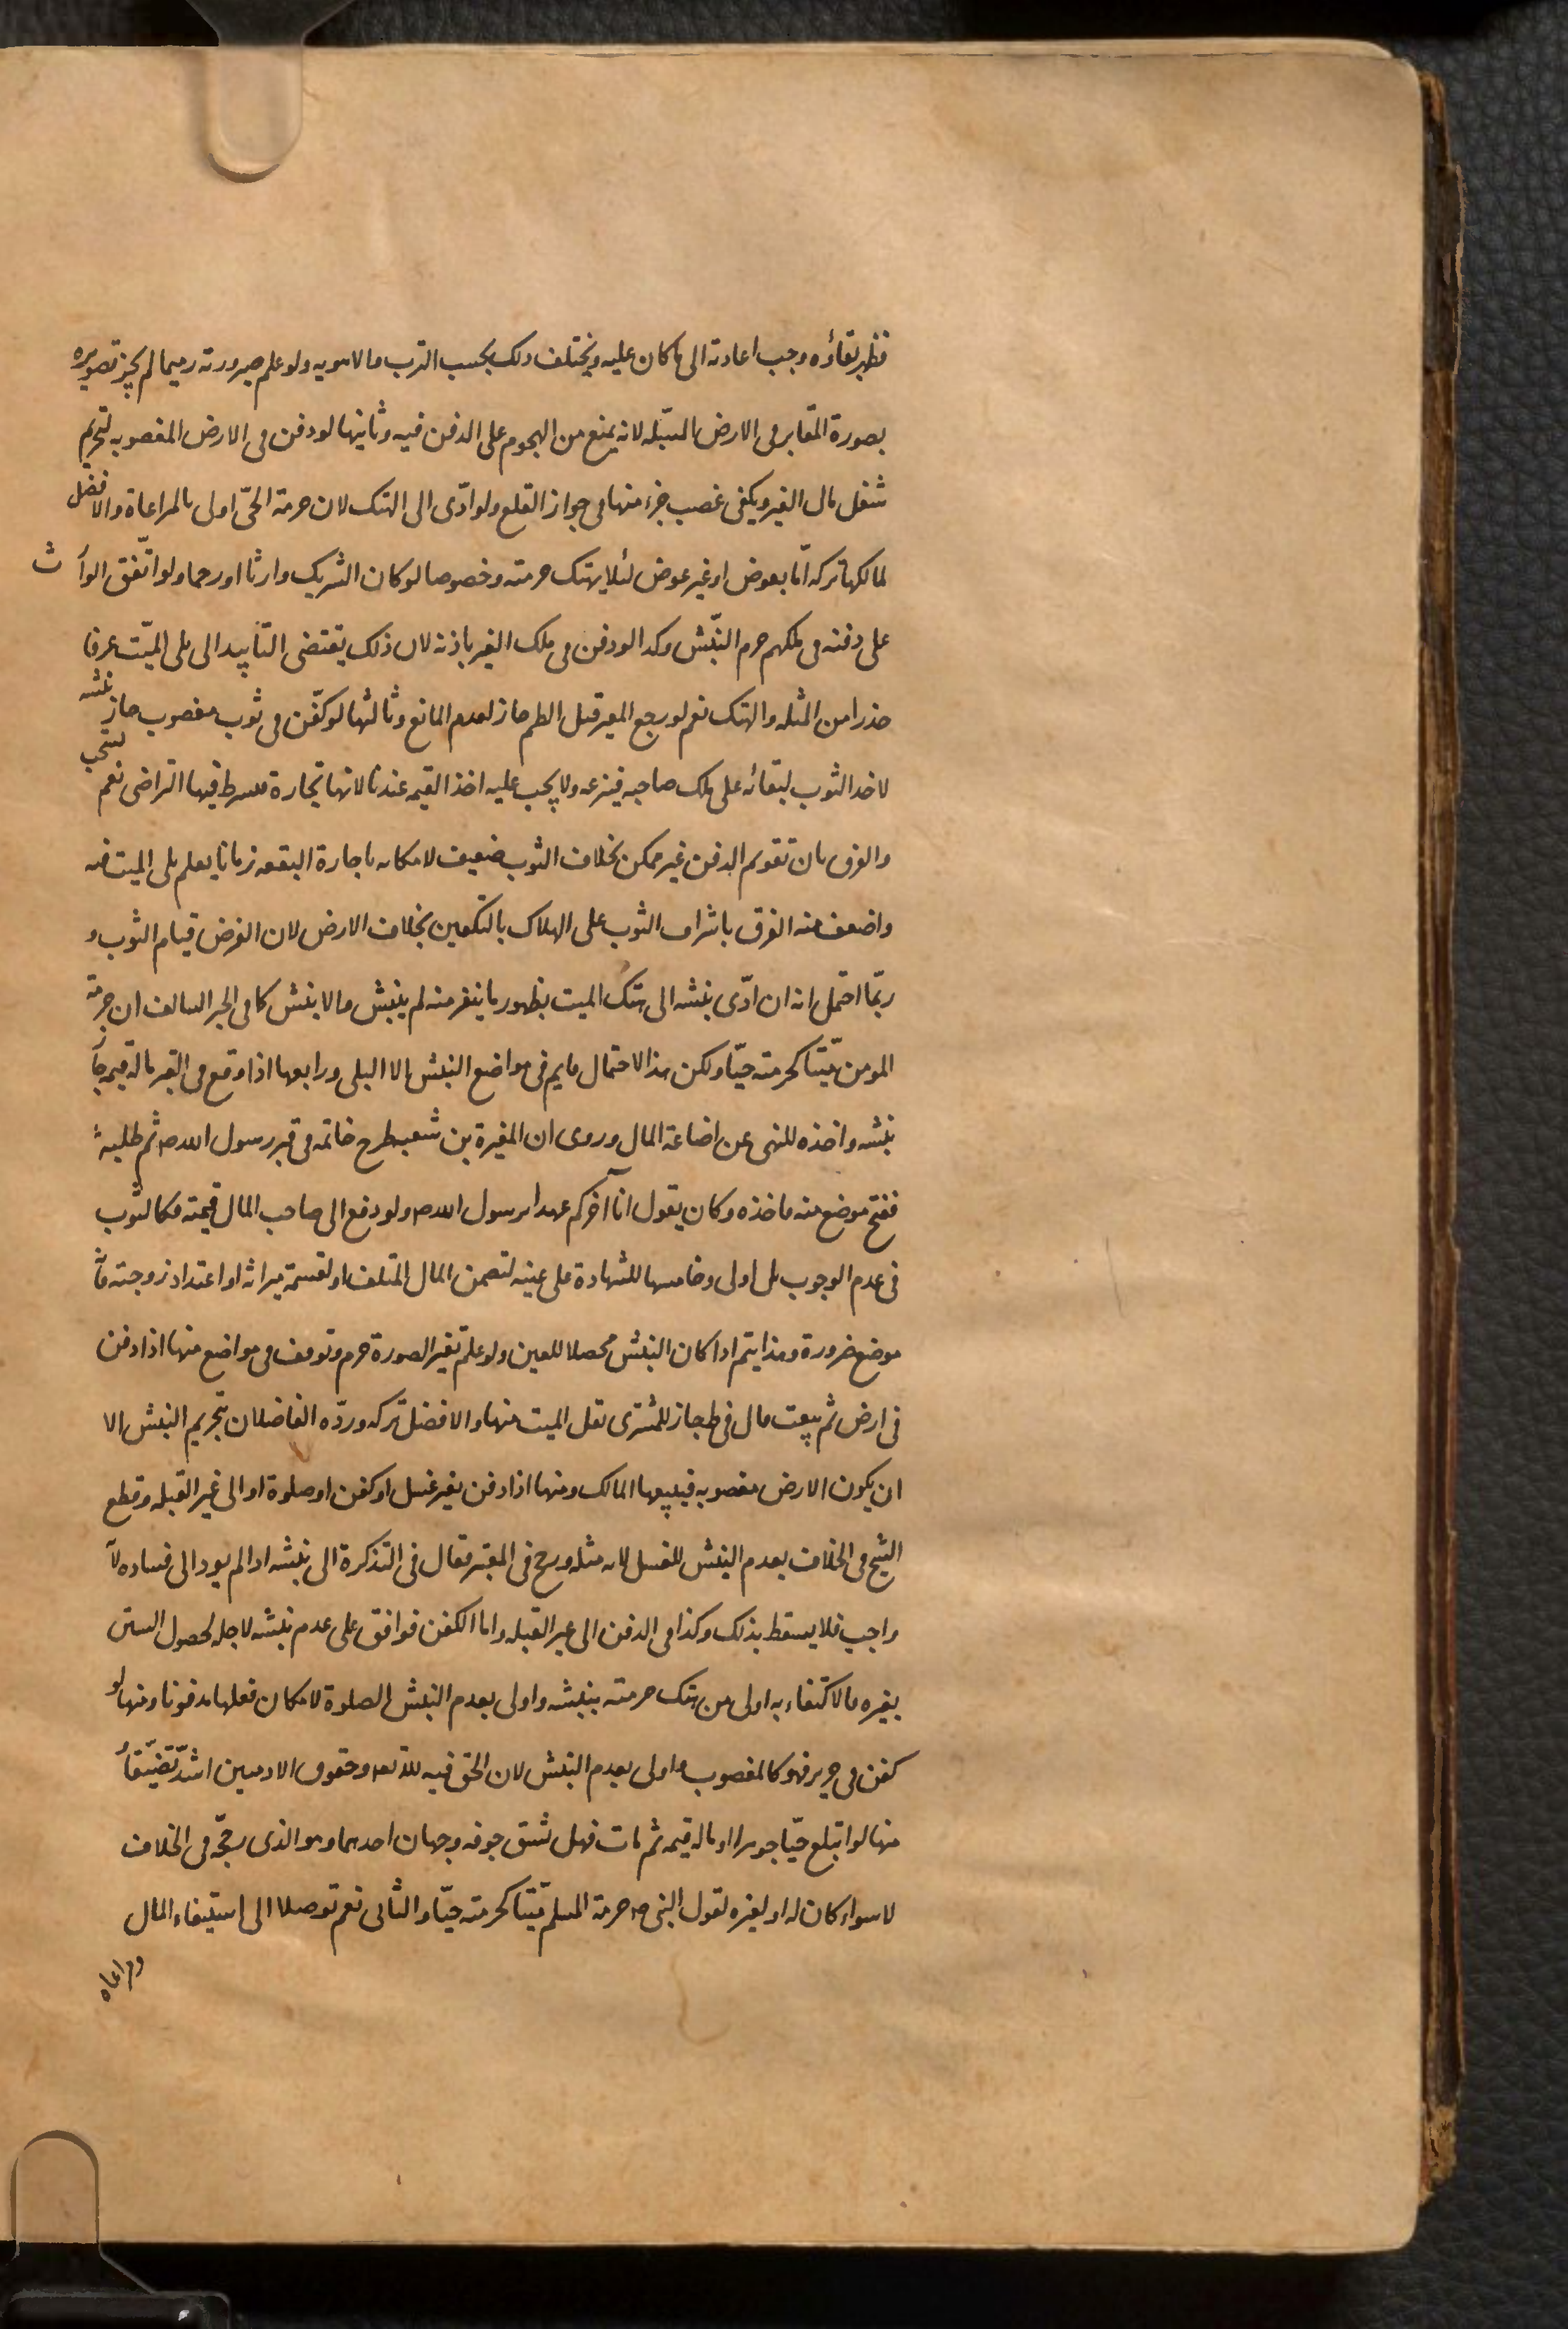 فظهر بقاؤه وجب اعادته الى ما كان عليه ويختلف ذلك بحسب الترب والاهويه ولو علم صيرورته رميما لم يجز تصويره
بصورة المقابر فى الارض المسبّله لانه يمنع من الهجوم على الدفن فيه وثانيها لو دفن فى الارض المغصوبه لتحريم
شغل مال الغير ويكفى غصب جزء منها فى جواز القلع ولو ادّى الى الهتك لان حرمة الحىّ اولى بالمراعاة والافضل
لمالكها تركه امّا بعوض او غير عوض لئلا يهتك حرمته وخصوصا لو كان الشريك وارثا او رحما ولو اتّفق الوارث
على دفنه فى ملكهم حرم النبش وكذا لو دفن فى ملك الغير باذنه لان ذلك يقتضى التأبيد الى بلى الميّت عرفا
حذرا من المثله والهتك نعم لو رجع المعير قبل الطم جاز لعدم المانع وثالثها لو كفّن فى ثوب مغصوب جاز نبشه
لاخذ الثوب لبقائه على ملك صاحبه فينزعه ولا يجب عليه اخذ القيمه عندنا لانها تجارة فيشرط فيها التراضى نعم يستحب
والفرق بان تقويم المدفن غير ممكن بخلاف الثوب ضعيف لامكانه باجارة البقعه زمانا يعلم بلى الميت فيه
واضعف منه الفرق باشراف الثوب على الهلاك بالتكفين بخلاف الارض لان الغرض قيام الثوب و
ربّما احتمل انه ان ادّى نبشه الى هتك الميت بظهور ما ينفر منه لم ينبش والا ينبش كما فى الخبر السالف ان حرمة
المومن ميّتا كحرمته حيّا ولكن هذا الاحتمال قايم فى مواضع النبش الا البلى ورابعها اذا وقع فى القبر ماله قيمة جاز
نبشه واخذه للنهى عن اضاعة المال وروى ان المغيرة بن شعبه طرح خاتمه فى قبر رسول الله ص ثم طلبه
ففتح موضع منه فاخذه وكان يقول انا آخركم عهدا برسول الله ص ولو دفع الى صاحب المال قيمته فكالثوب
فى عدم الوجوب بل اولى وخامسها للشهادة على عينه لتضمن المال المتلف او لقسمة ميراثه او اعتداد زوجته فانّه
موضع ضرورة وهذا يتم اذا كان النبش محصلا للعين ولو علم تغير الصورة حرم وتوقف فى مواضع منها اذا دفن
فى ارض ثم بيعت قال فى ط جاز للمشترى نقل الميت منها والافضل تركه وردّه الفاضلان بتحريم النبش الا
ان يكون الارض مغصوبه فيبيعها المالك ومنها اذا دفن بغير غسل او كفن او صلوة او الى غير القبله وقطع
الشيخ فى الخلاف بعدم النبش للغسل لانه مثله ورجح فى المعتبر وقال فى التذكرة الى نبشه اذا لم يود الى فساده لانه
واجب فلا يسقط بذلك وكذا فى الدفن الى غير القبله واما الكفن فوافق على عدم نبشه لاجله لحصول الستر
بغيره والاكتفاء به اولى من هتك حرمته بنبشه واولى بعدم النبش الصلوة لامكان فعلها مدفونا ومنها لو
كفن فى حرير فهو كالمغصوب واولى بعدم النبش لان الحق فيه لله تعه وحقوق الادميين اشدّ تضيّقا و
منها لو ابتلع حيّا جوهرا او ماله قيمه ثم مات فهل تشق جوفه وجهان احدهما وهو الذى رجّحه فى الخلاف
لا سواء كان له او لغيره لقول النبى ص حرمة المسلم ميّتا كحرمته حيّا والثانى نعم توصلا الى استيفاء المال
ومراعاه